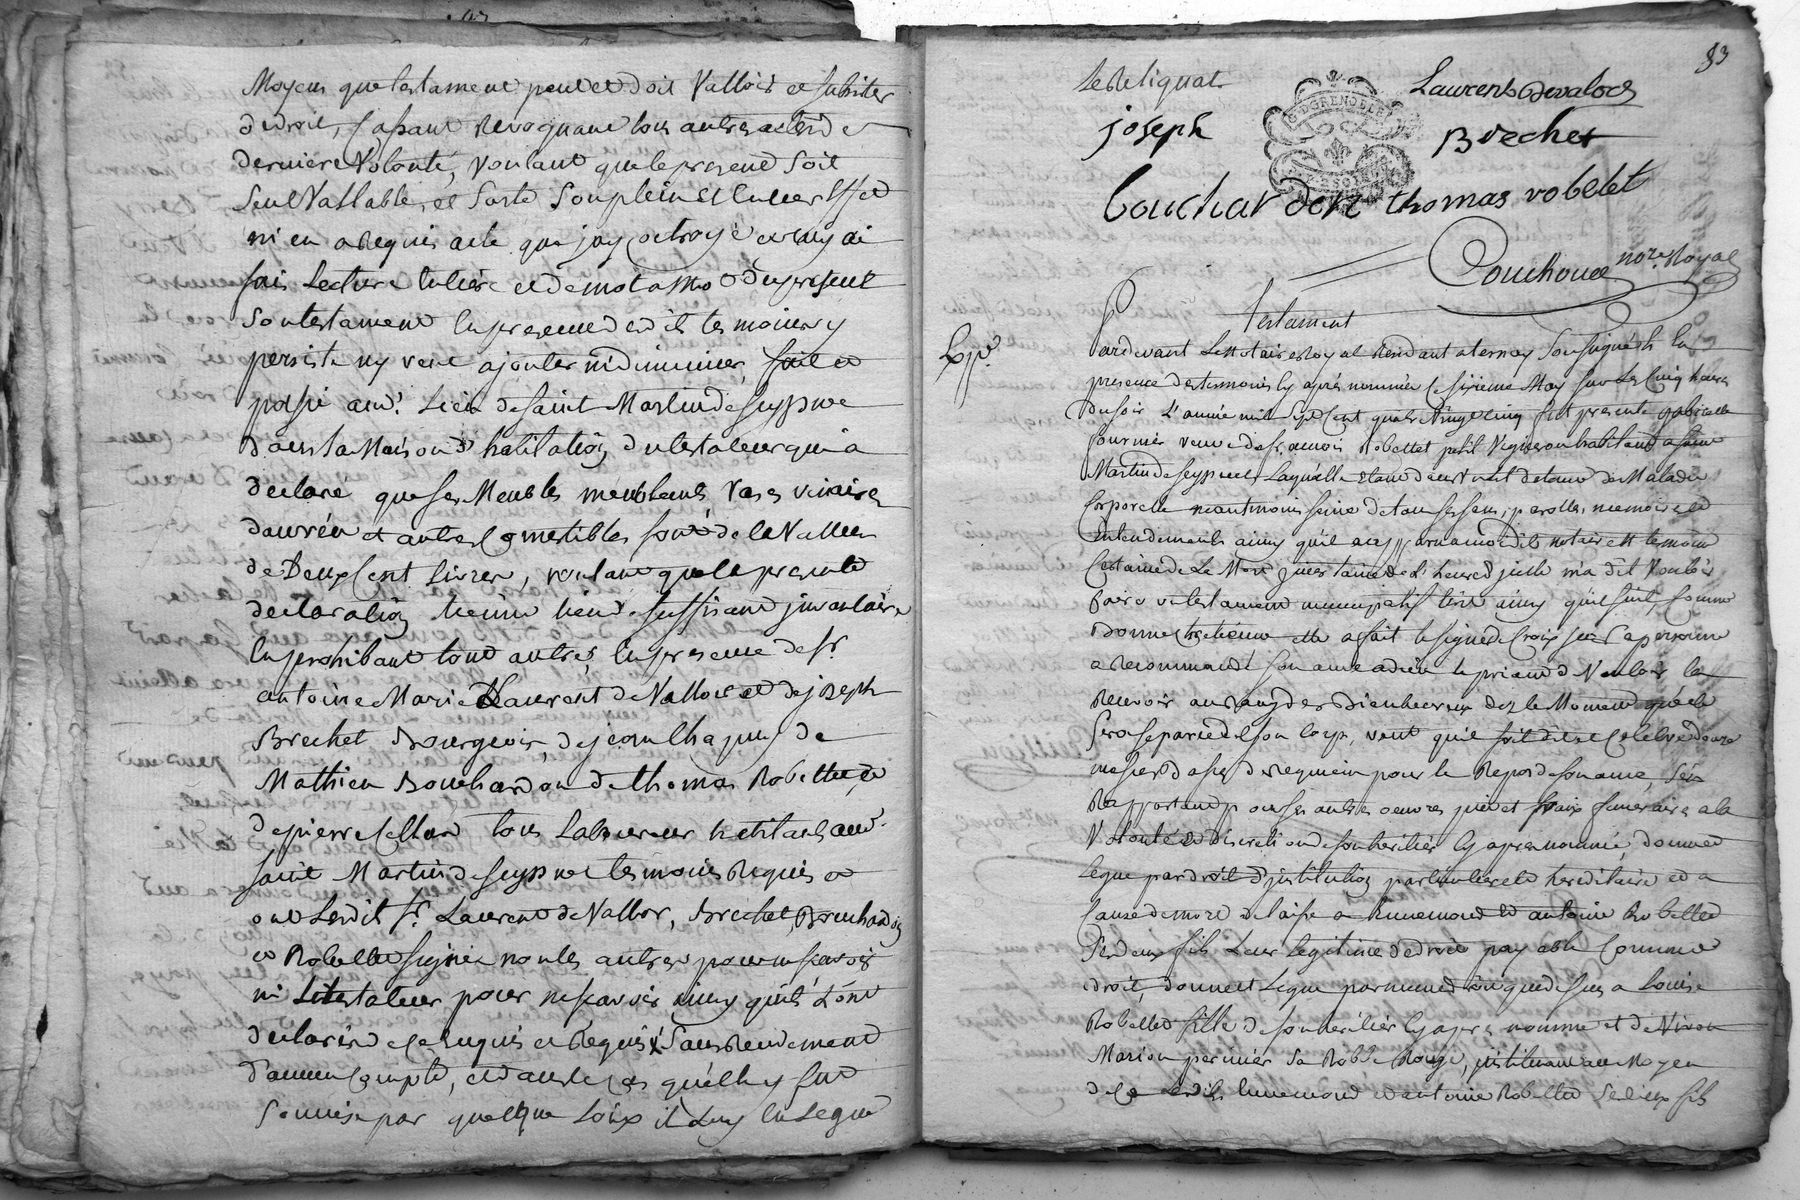 Moyens que testament peut et doit Valloir et subsister
de droit, Cassant Revoquant tous autres actes de
derniere Volonté, voulant que le present soit
seul Vallable, et sorte son plein Et Entier Effet
m'en a Requis acte que j'ay octroyé et luy ai
fait Lecture Entiere et de mot a mot du present
son testament En presence des dits temoins y
persiste ny veut ajouter ni diminuer, fait et
passé aud. Lieu de saint Martin de seyssuel
dans la Maison d'habitation du testateur qui a
declaré que ses Meubles meublants Vases vinaires
danrées et autres Comestibles sont de la Valleur
de Deux Cent Livres, voulant que la presente
declaration tienne lieu de suffisant jnventaire
En prohibant tout autre, En presence de sr.
antoine Marie Laurent de Vallois et de joseph
Brechet Bourgeois, de jean Chapuy de
Mathieu Bouchardon de thomas Robellet, et
de pierre Cellard tous Laboureurs habitants aud.
saint Martin de seyssuel temoins Requis et
ont Lesdit sr. Laurent de Vallois, Brechet, Bouchardon
et Robellet signés non les autres pour ne sçavoir
ni Le testateur pour ne sçavoir ainsy qu'ils L'ont
declaré de ce Enquis et Requis, sans Rendement
d'aucun Compte, et dans le Cas qu'elle y fut
soumise par quelque Loix il Luy En Legue
83
Le Reliquat
Laurent Devalois
joseph Brechet
D GRENOBLE
Bouchardon thomas robelet
Couchoud nore Royal
testament
Exp.é
Pardevant Le Nottaire Royal Residant a ternay soussigné et En
presence des temoins Cy aprés nommés Ce sixieme May sur Les Cinq heures
Du soir L'année mil sept Cent quatre Vingt Cinq fut presente
fournier veuve de françois Robellet petit Vigneron habitant a saint
Martin de seyssuel Laquelle Etant dans un Lit detenue de Maladie
Corporelle neantmoins saine de tous ses sens, parolles, memoire et
Entendement ainsy qu'il a apparu a moi dit notaire Et temoins
Certaine de La Mort jncertaine de L'heure d'jcelle m'a dit Vouloir
faire un testament nuncupatif Ecrit ainsy qu'il suit, Comme
Bonne Chretienne Elle a fait le signe de Croix sur sa personne
a Recommandé son ame a dieu le priant de Vouloir la
Recevoir au Rang des Bienheureux dez le Moment qu'elle
sera separée de son Corp, veut qu'il soit dit et Celebré douze
messes Basses de Requiem pour le Repos de son ame, s'en
Rapportant pour ses autres oeuvres pies et fraix funeraires a la
Volonté et discretion de son heritier Cy aprés nommé, donne et
Legue par droit d'jnstitution particuliere et hereditaire et a
Cause de mort delaisse a Ennemond et antoine Robellet
ses deux fils Leur Legitime de droit payable Comme
de droit, donne et Legue par meme droit que dessus a Louise
Robellet fille de son heritier Cy aprés nommé et de
Marion perinier sa Robbe Rouge, jnstituant au Moyen
de Ce Lesdits Ennemond et antoine Robellet ses deux fils